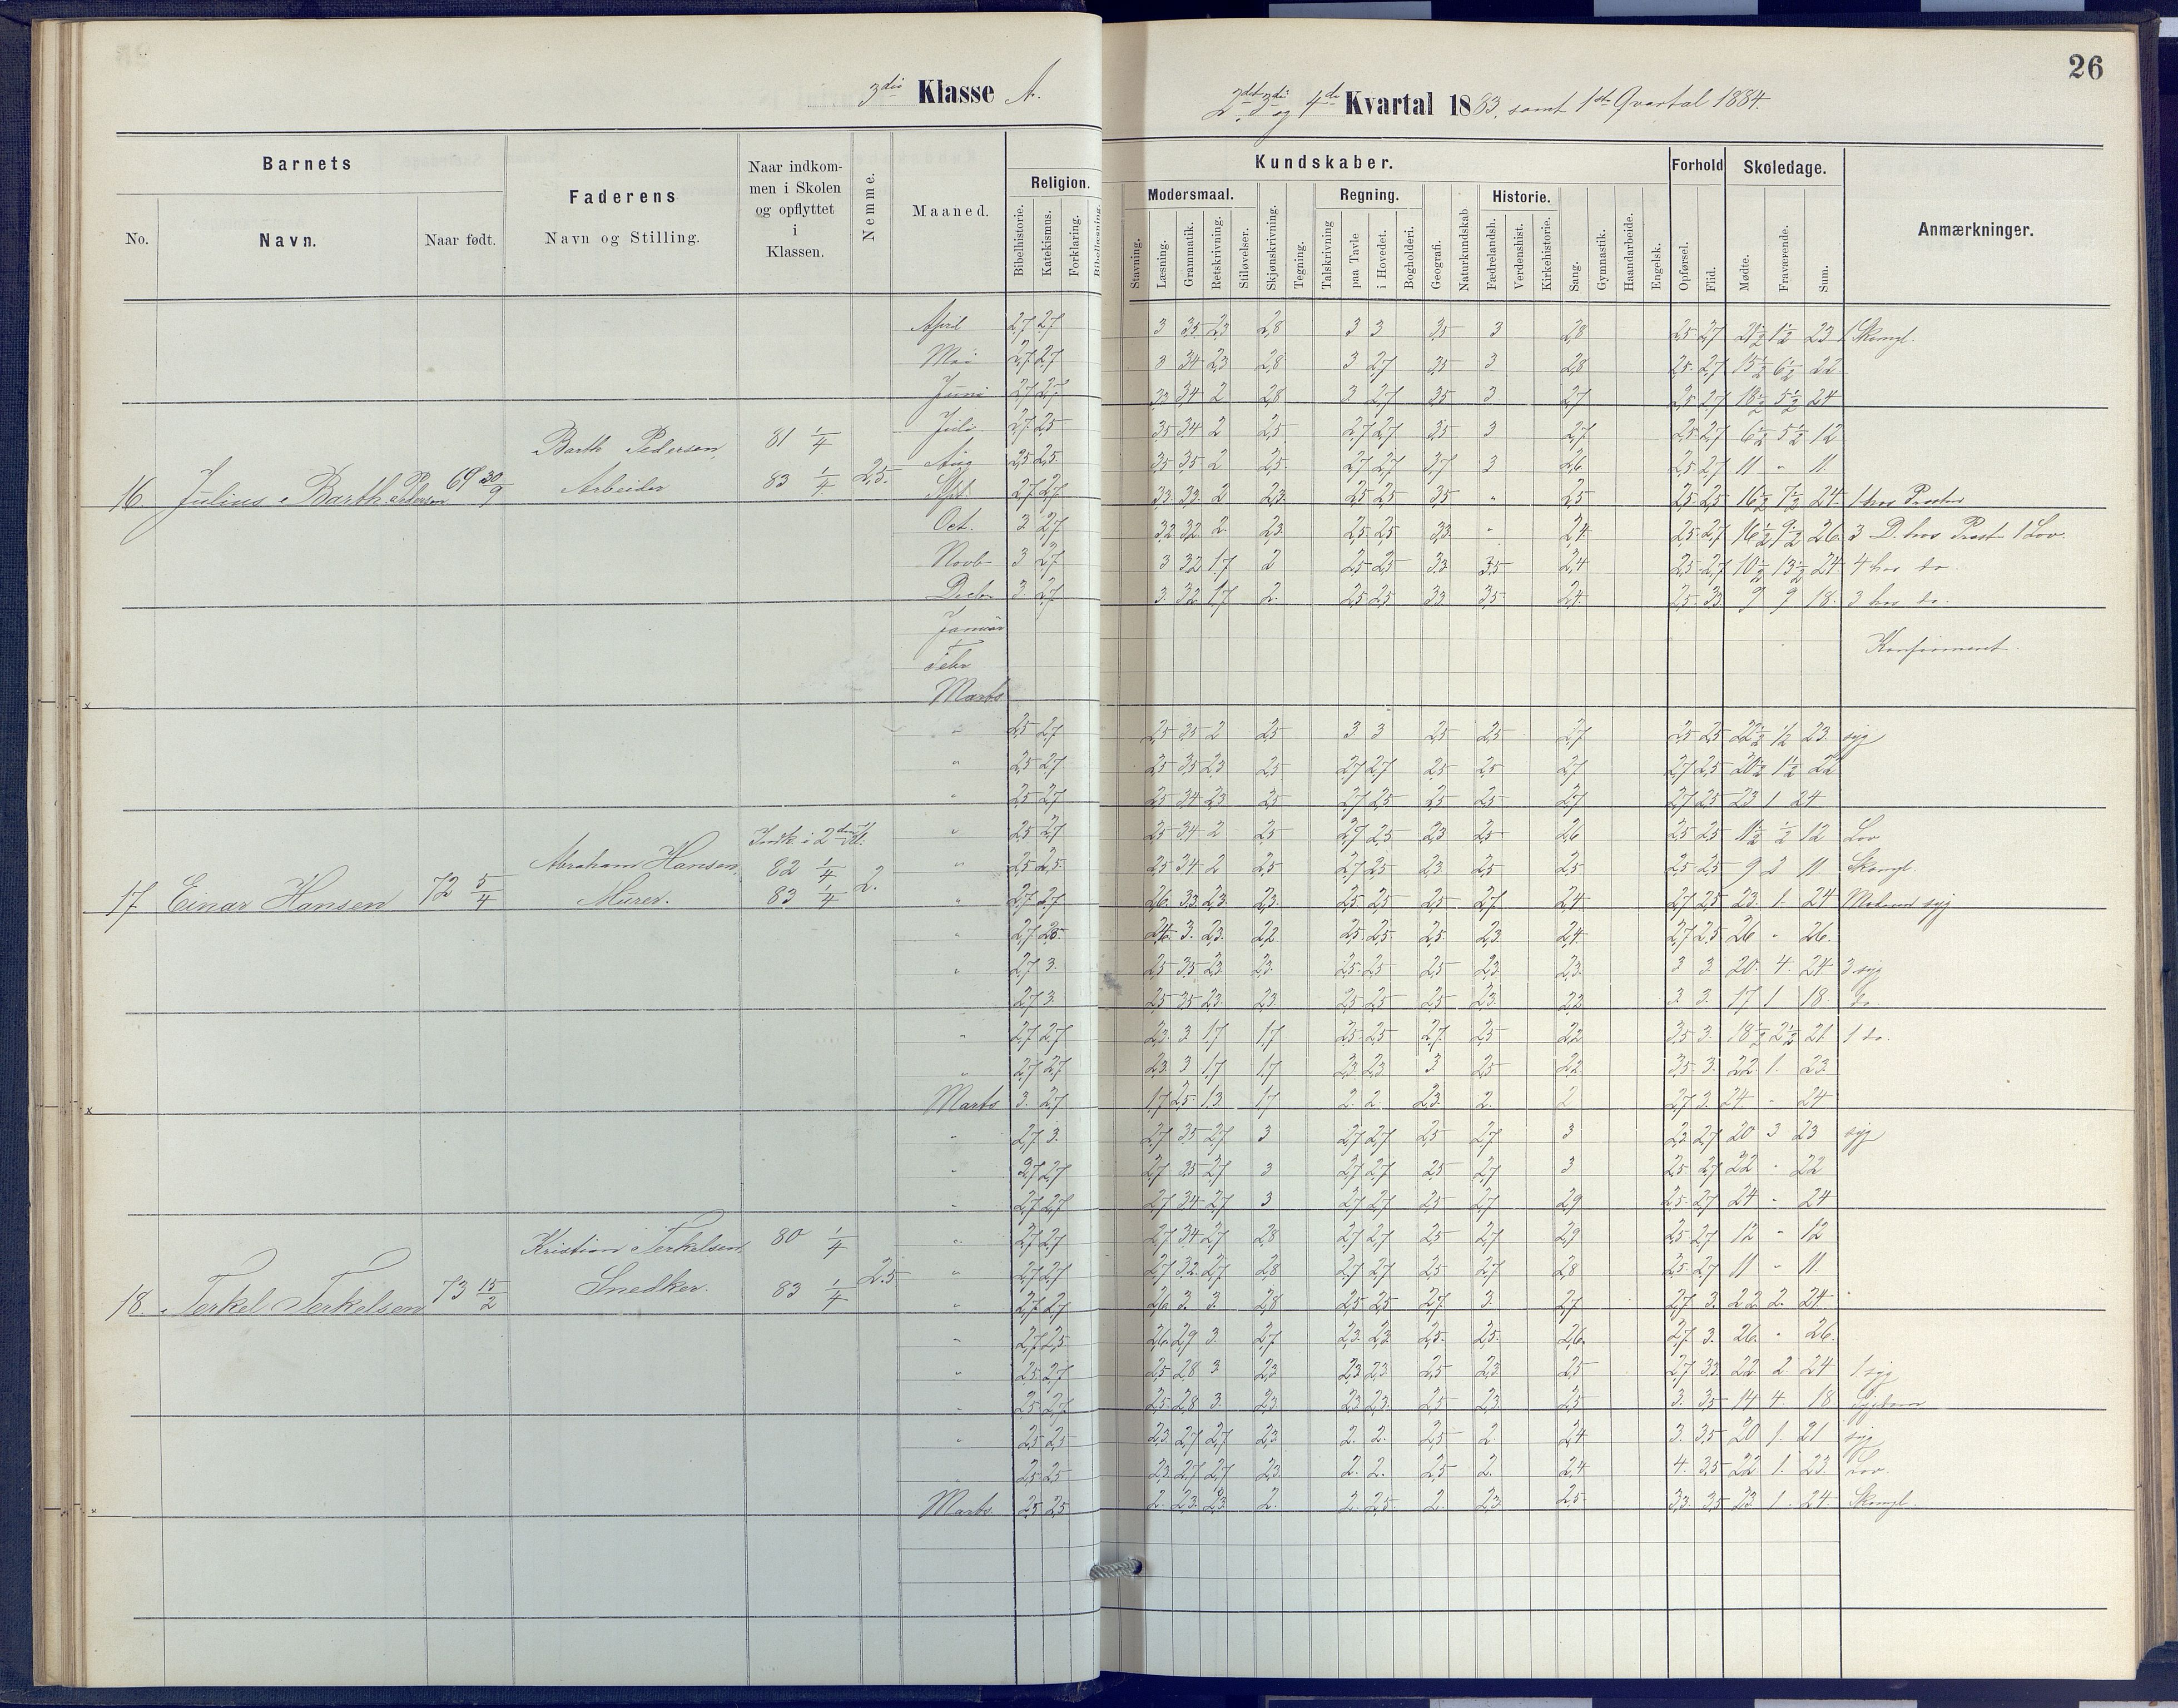 26
3die Klasse A.
2det 3die og 4de Kvartal 1883, samt 1ste Qvartal 1884.
Barnets
Faderens
Naar indkommen i Skolen og opflyttet i Klassen.
Nemme.
Maaned.
Religion.
Kundskaber.
Forhold
Skoledage.
Anmærkninger.
No.
Navn.
Naar født.
Navn og Stilling.
Bibelhistorie.
Katekismus.
Forklaring.
Bibellæsning.
Modersmaal.
Stavning.
Læsning.
Grammatik.
Retskrivning.
Stiløvelser.
Skjønskrivning.
Tegning.
Regning.
Talskrivning
paa Tavle
i Hovedet.
Bogholderi.
Geografi.
Naturkundskab
Historie.
Fædrelandsh.
Verdenshist.
Kirkehistorie.
Sang.
Gymnastik.
Haandarbeide.
Engelsk.
Opførsel.
Flid.
Mødte.
Fraværende.
Sum.
16. Julius Barth Pedersen 69 30/9 Barth Pedersen, Arbeider 81 1/4 83 1/4 2,5
April 2,7 2,7 3 3,5 2,3 2,8 3 3 3,5 3 2,8 2,5 2,7 21 1/2 1 1/2 23 1 Skomgl.
Mai 2,7 2,7 3 3,4 2,3 2,8 3 2,7 3,5 3 2,8 2,5 2,7 15 1/2 6 1/2 22
Juni 2,7 2,7 3,3 3,4 2 2,8 3 2,7 3,5 3 2,7 2,5 2,7 18 1/2 5 1/2 24
Juli 2,7 2,5 3,5 3,4 2 2,5 2,7 2,7 3,5 3 2,7 2,5 2,7 6 1/2 5 1/2 12
Aug 2,5 2,5 3,5 3,5 2 2,5 2,7 2,7 3,7 3 2,6 2,5 2,7 11 " 11
Spt. 2,7 2,7 3,3 3,3 2 2,3 2,5 2,5 3,5 " 2,5 2,5 2,5 16 1/2 7 1/2 24 1 hos Prasten
Oct. 3 2,7 3,2 3,2 2 2,3 2,5 2,5 3,3 " 2,4 2,5 2,7 16 1/2 9 1/2 26 3 D. hos Prast 1 Lov.
Novb 3 2,7 3 3,2 1,7 2 2,5 2,5 3,3 3,5 2,4 2,5 2,7 10 1/2 13 1/2 24 4 hos do.
Decbr 3 2,7 3 3,2 1,7 2 2,5 2,5 3,3 3,5 2,4 2,5 3,3 9 9 18 3 hos do.
Januar
Febr
Konfirmeret.
Marts
17. Einar Hansen 72 5/4 Abraham Hansen, Murer. Indk. i 2den Kl. 82 1/4 83 1/4 2.
" 2,5 2,7 2,5 3,5 2 2,5 3 3 2,5 2,5 2,7 2,5 2,5 22 1/2 1/2 23 syg
" 2,5 2,7 2,5 3,5 2,3 2,5 2,7 2,7 2,5 2,5 2,7 2,7 2,5 20 1/2 1 1/2 22
" 2,5 2,7 2,5 3,4 2,3 2,5 2,7 2,5 2,5 2,5 2,7 2,7 2,5 23 1 24
" 2,5 2,7 2,5 3,4 2 2,5 2,7 2,5 2,3 2,5 2,6 2,5 2,5 11 1/2 1/2 12 Lov
" 2,5 2,5 2,5 3,4 2 2,5 2,7 2,5 2,3 2,5 2,5 2,5 2,5 9 2 11 Skomgl.
" 2,7 2,7 2,6 3,3 2,3 2,3 2,5 2,5 2,5 2,7 2,4 2,7 2,5 23 1 24 Moderen syg
" 2,7 2,4 3 2,3 2,2 2,5 2,5 2,5 2,3 2,4 2,7 2,5 26 " 26
" 2,7 3 2,5 3,5 2,3 2,3 2,5 2,5 2,5 2,3 2,3 3 3 20 4 24 3 syg
2,7 3 2,5 3,5 2,3 2,3 2,5 2,5 2,5 2,3 2,2 3 3 17 1 18 do.
" 2,7 2,7 2,3 3 1,7 1,7 2,5 2,5 2,7 2,5 2,2 3,5 3 18 1/2 2 1/2 21 1 do.
" 2,7 2,7 2,3 3 1,7 1,7 2,3 2,3 3 2,5 2,2 3,5 3 22 1 23
Marts 3 2,7 1,7 2,5 1,3 1,7 2 2 2,3 2 2 2,7 3 24 " 24
18. Terkel Terkelsen 73 15/2 Kristian Terkelsen, Snedker. 80 1/4 83 1/4 2.5
" 2,7 3 2,7 3,5 2,7 3 2,7 2,7 2,5 2,7 3 2,3 2,7 20 3 23 syg
" 2,7 2,7 2,7 3,5 2,7 3 2,7 2,7 2,5 2,7 3 2,5 2,7 22 " 22
" 2,7 2,7 2,7 3,4 2,7 3 2,7 2,7 2,5 2,7 2,9 2,5 2,7 24 " 24
" 2,7 2,7 2,7 3,4 2,7 2,8 2,7 2,7 2,5 2,7 2,9 2,5 2,7 12 " 12
" 2,7 2,7 2,7 3,2 2,7 2,8 2,7 2,7 2,5 2,7 2,8 2,5 2,7 11 " 11
" 2,7 2,7 2,6 3 3 2,8 2,5 2,5 2,7 3 2,7 2,7 3 22 2 24
" 2,7 2,5 2,6 2,9 3 2,7 2,3 2,3 2,5 2,5 2,6 2,7 3 26 " 26
" 2,5 2,7 2,5 2,8 3 2,3 2,3 2,3 2,5 2,3 2,5 2,7 3,3 22 2 24 1 syg
" 2,5 2,7 2,5 2,8 3 2,3 2,3 2,3 2,5 2,3 2,5 3 3,5 14 4 18
" 2,5 2,5 2,3 2,7 2,7 2,3 2 2 2,5 2 2,4 3 3,5 20 1 21 syg
" 2,5 2,5 2,3 2,7 2,7 2,3 2 2 2,5 2 2,4 4 3,5 22 1 23 Lov.
Marts 2,5 2,5 2 2,3 2,3 2 2 2,5 2 2,3 2,5 3,3 3,5 23 1 24 Skomgl.